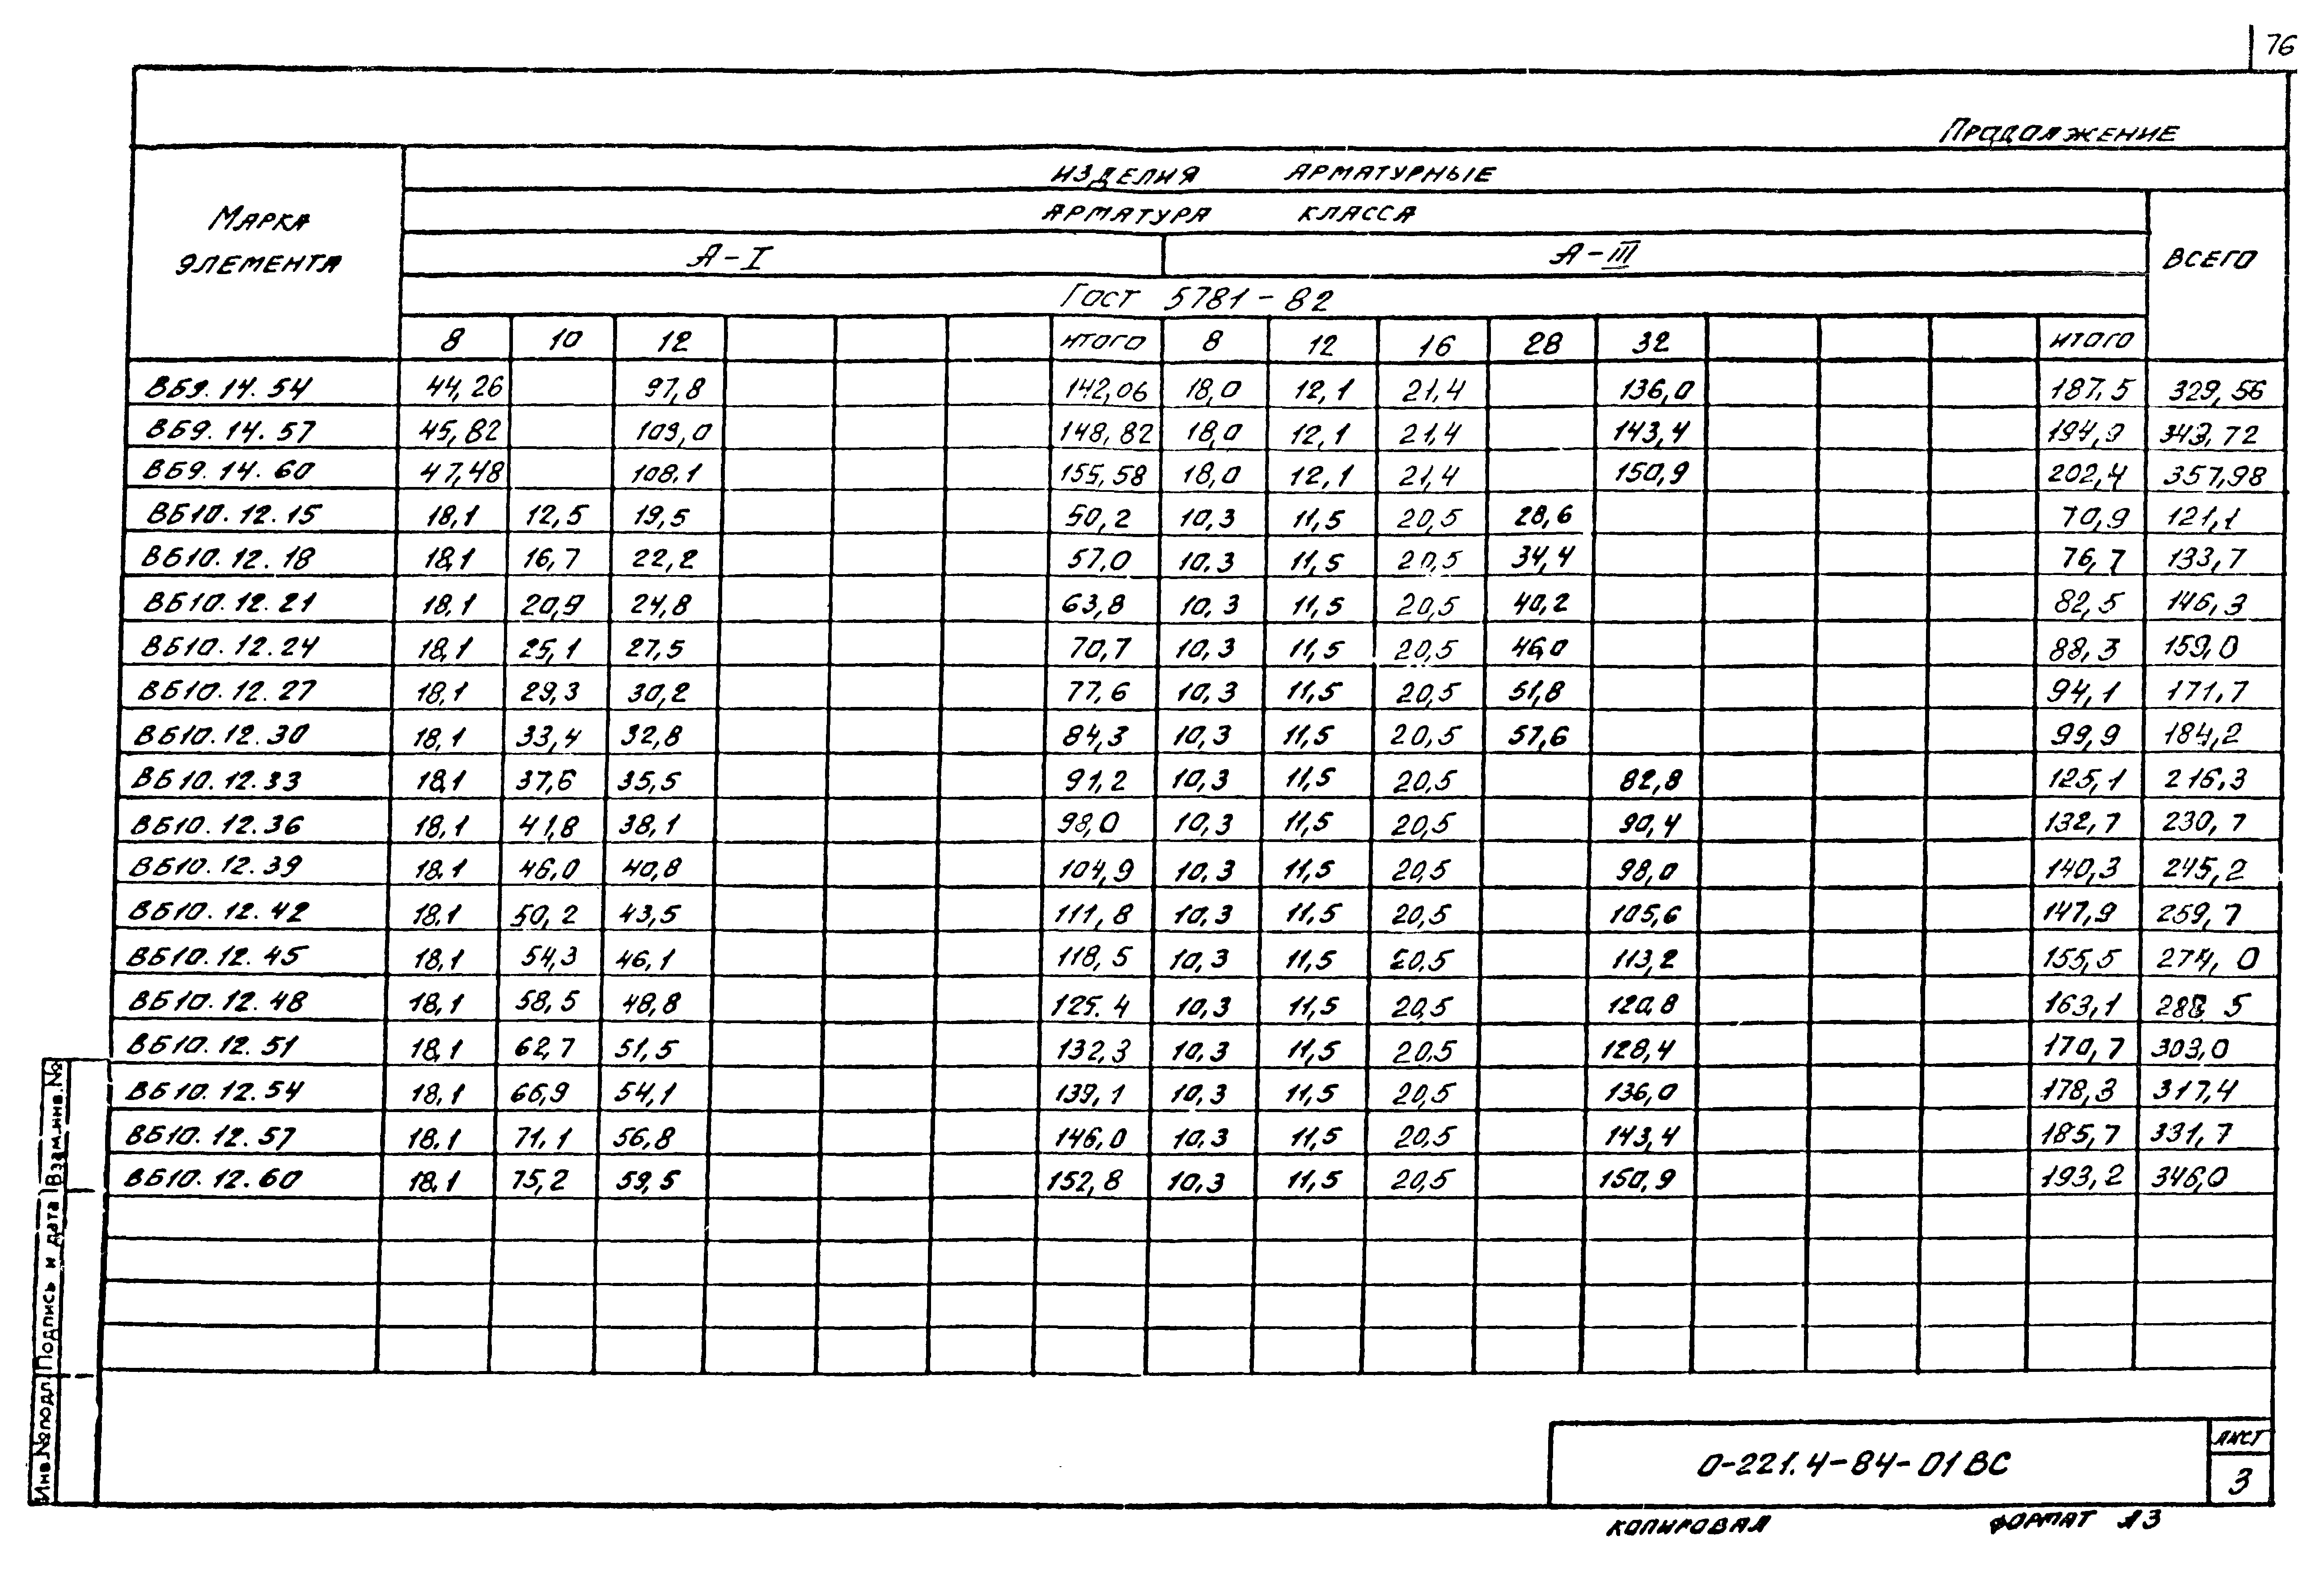 76
Продолжение
Марка элемента
Изделия арматурные
Арматура класса
Всего
А-I А-III
Гост 5781-82
8 10 12 итого 8 12 16 28 32 итого
ВБ9.14.54 44,26 97,8 142,06 18,0 12,1 21,4 136,0 187,5 329,56
ВБ9.14.57 45,82 103,0 148,82 18,0 12,1 21,4 143,4 194,9 343,72
ВБ9.14.60 47,48 108,1 155,58 18,0 12,1 21,4 150,9 202,4 357,98
ВБ10.12.15 18,1 12,5 19,5 50,2 10,3 11,5 20,5 28,6 70,9 121,1
ВБ10.12.18 18,1 16,7 22,2 57,0 10,3 11,5 20,5 34,4 76,7 133,7
ВБ10.12.21 18,1 20,9 24,8 63,8 10,3 11,5 20,5 40,2 82,5 146,3
ВБ10.12.24 18,1 25,1 27,5 70,7 10,3 11,5 20,5 46,0 88,3 159,0
ВБ10.12.27 18,1 29,3 30,2 77,6 10,3 11,5 20,5 51,8 94,1 171,7
ВБ10.12.30 18,1 33,4 32,8 84,3 10,3 11,5 20,5 57,6 99,9 184,2
ВБ10.12.33 18,1 37,6 35,5 91,2 10,3 11,5 20,5 82,8 125,1 216,3
ВБ10.12.36 18,1 41,8 38,1 98,0 10,3 11,5 20,5 90,4 132,7 230,7
ВБ10.12.39 18,1 46,0 40,8 104,9 10,3 11,5 20,5 98,0 140,3 245,2
ВБ10.12.42 18,1 50,2 43,5 111,8 10,3 11,5 20,5 105,6 147,9 259,7
ВБ10.12.45 18,1 54,3 46,1 118,5 10,3 11,5 20,5 113,2 155,5 274,0
ВБ10.12.48 18,1 58,5 48,8 125.4 10,3 11,5 20,5 120,8 163,1 288,5
ВБ10.12.51 18,1 62,7 51,5 132,3 10,3 11,5 20,5 128,4 170,7 303,0
ВБ10.12.54 18,1 66,9 54,1 139,1 10,3 11,5 20,5 136,0 178,3 317,4
ВБ10.12.57 18,1 71,1 56,8 146,0 10,3 11,5 20,5 143,4 185,7 331,7
ВБ10.12.60 18,1 75,2 59,5 152,8 10,3 11,5 20,5 150,9 193,2 346,0
Взам.инв.№
Подпись и дата
Инв.№подл.
0-221.4-84-01ВС
Лист
3
Копировал Формат А3